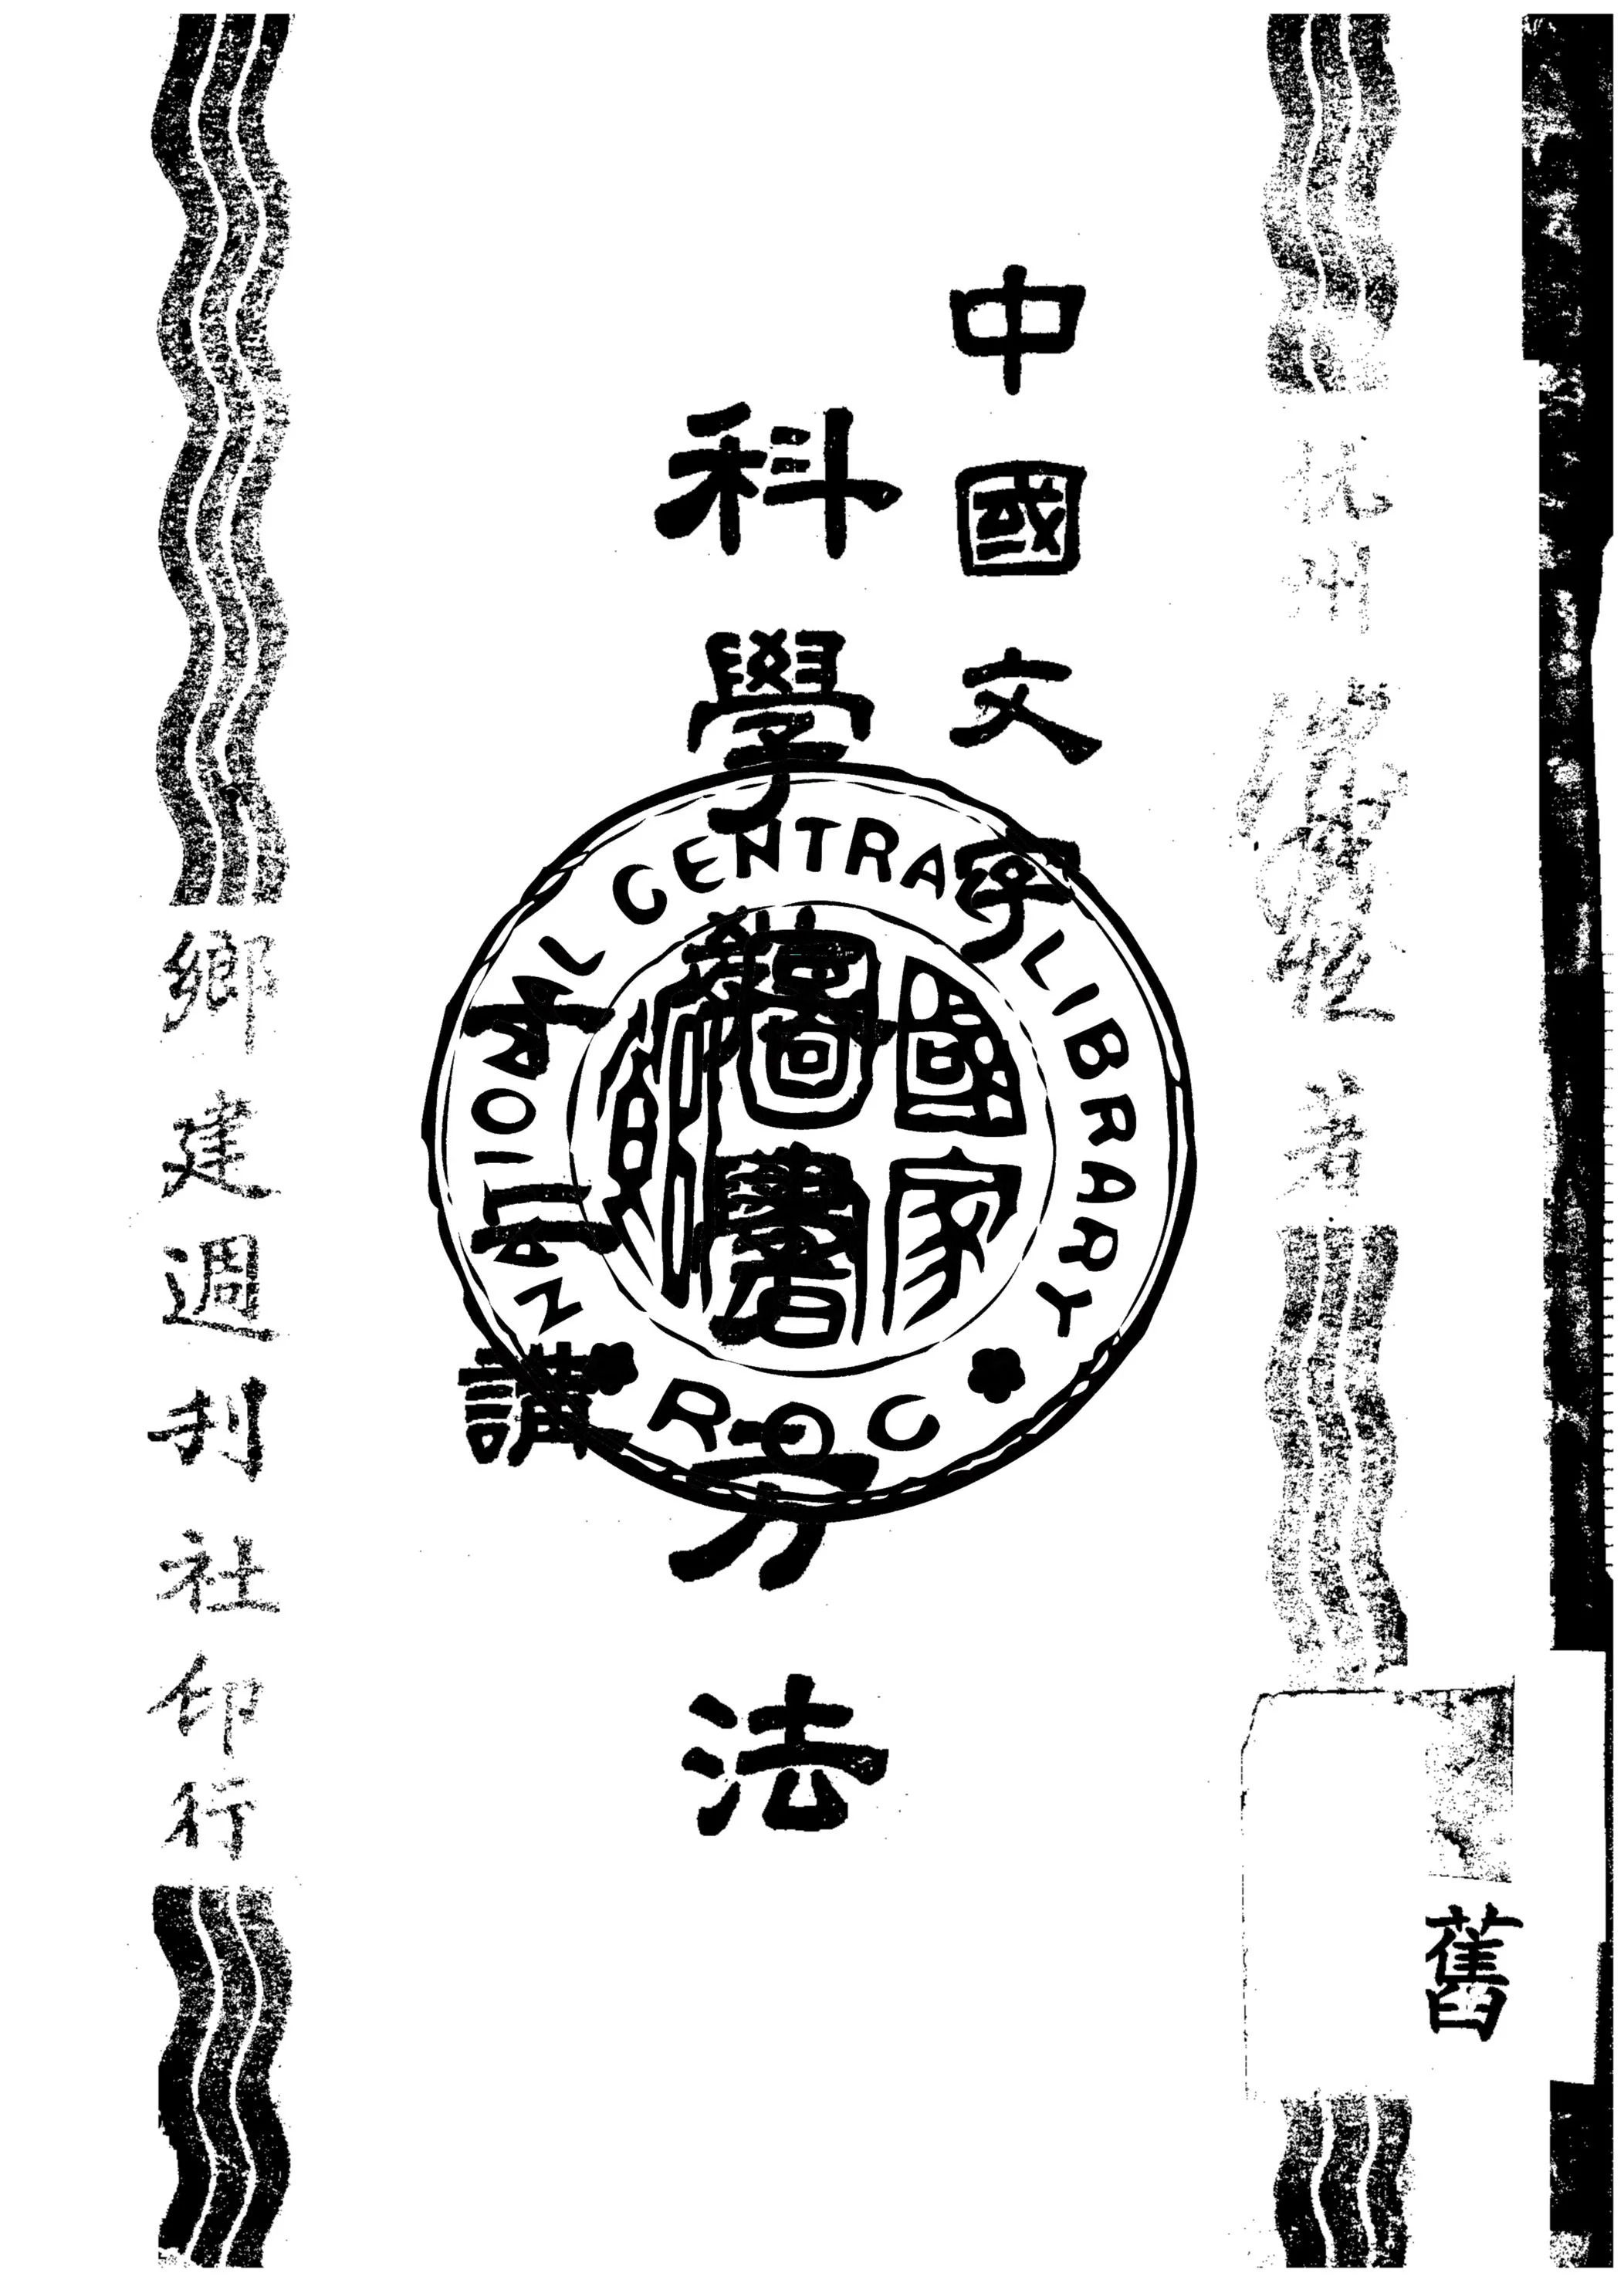 舊
杭州
著
中國文字
科學
方法
十二講
鄉建週刊社印行
NATIONAL CENTRAL LIBRARY
R.O.C
國家圖書館